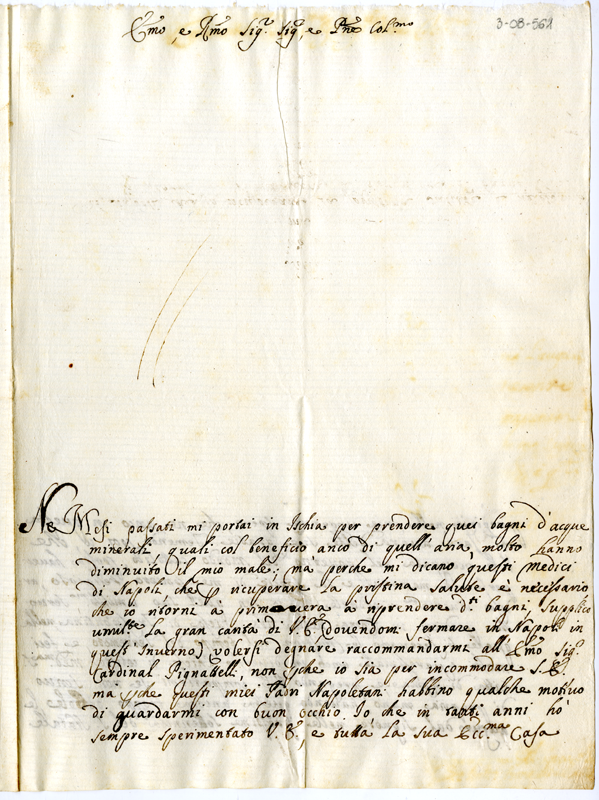 Emo, e Rmo Sigr. Sigr, e Pne Col.mo
3-08-562
Ne Mesi passati mi portai in Ischia per prendere quei bagni d'acque
minerali, quali col beneficio anco di quell'aria, molto hanno
diminuito il mio male; ma perche mi dicano questi Medici
di Napoli, che p ricuperare la pristina salute è necessario
che io ritorni à primavera à riprendere d.i bagni, supplico
umilte la gran carità di V. E. (dovendomi fermare in Napoli in
quest'Inverno) volersi degnare raccommandarmi all'Emo Sigr
Cardinal Pignattelli, non pche io sia per incommodare S. E.
mà pche questi miei Padri Napoletani habbino qualche motivo
di guardarmi con buon occhio. Io, che in tanti anni hò
sempre sperimentato V. E., e tutta la sua Ecc.ma Casa